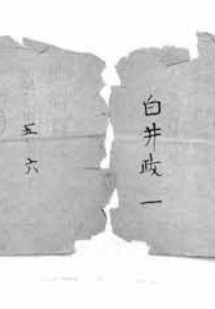 白井政一
五六